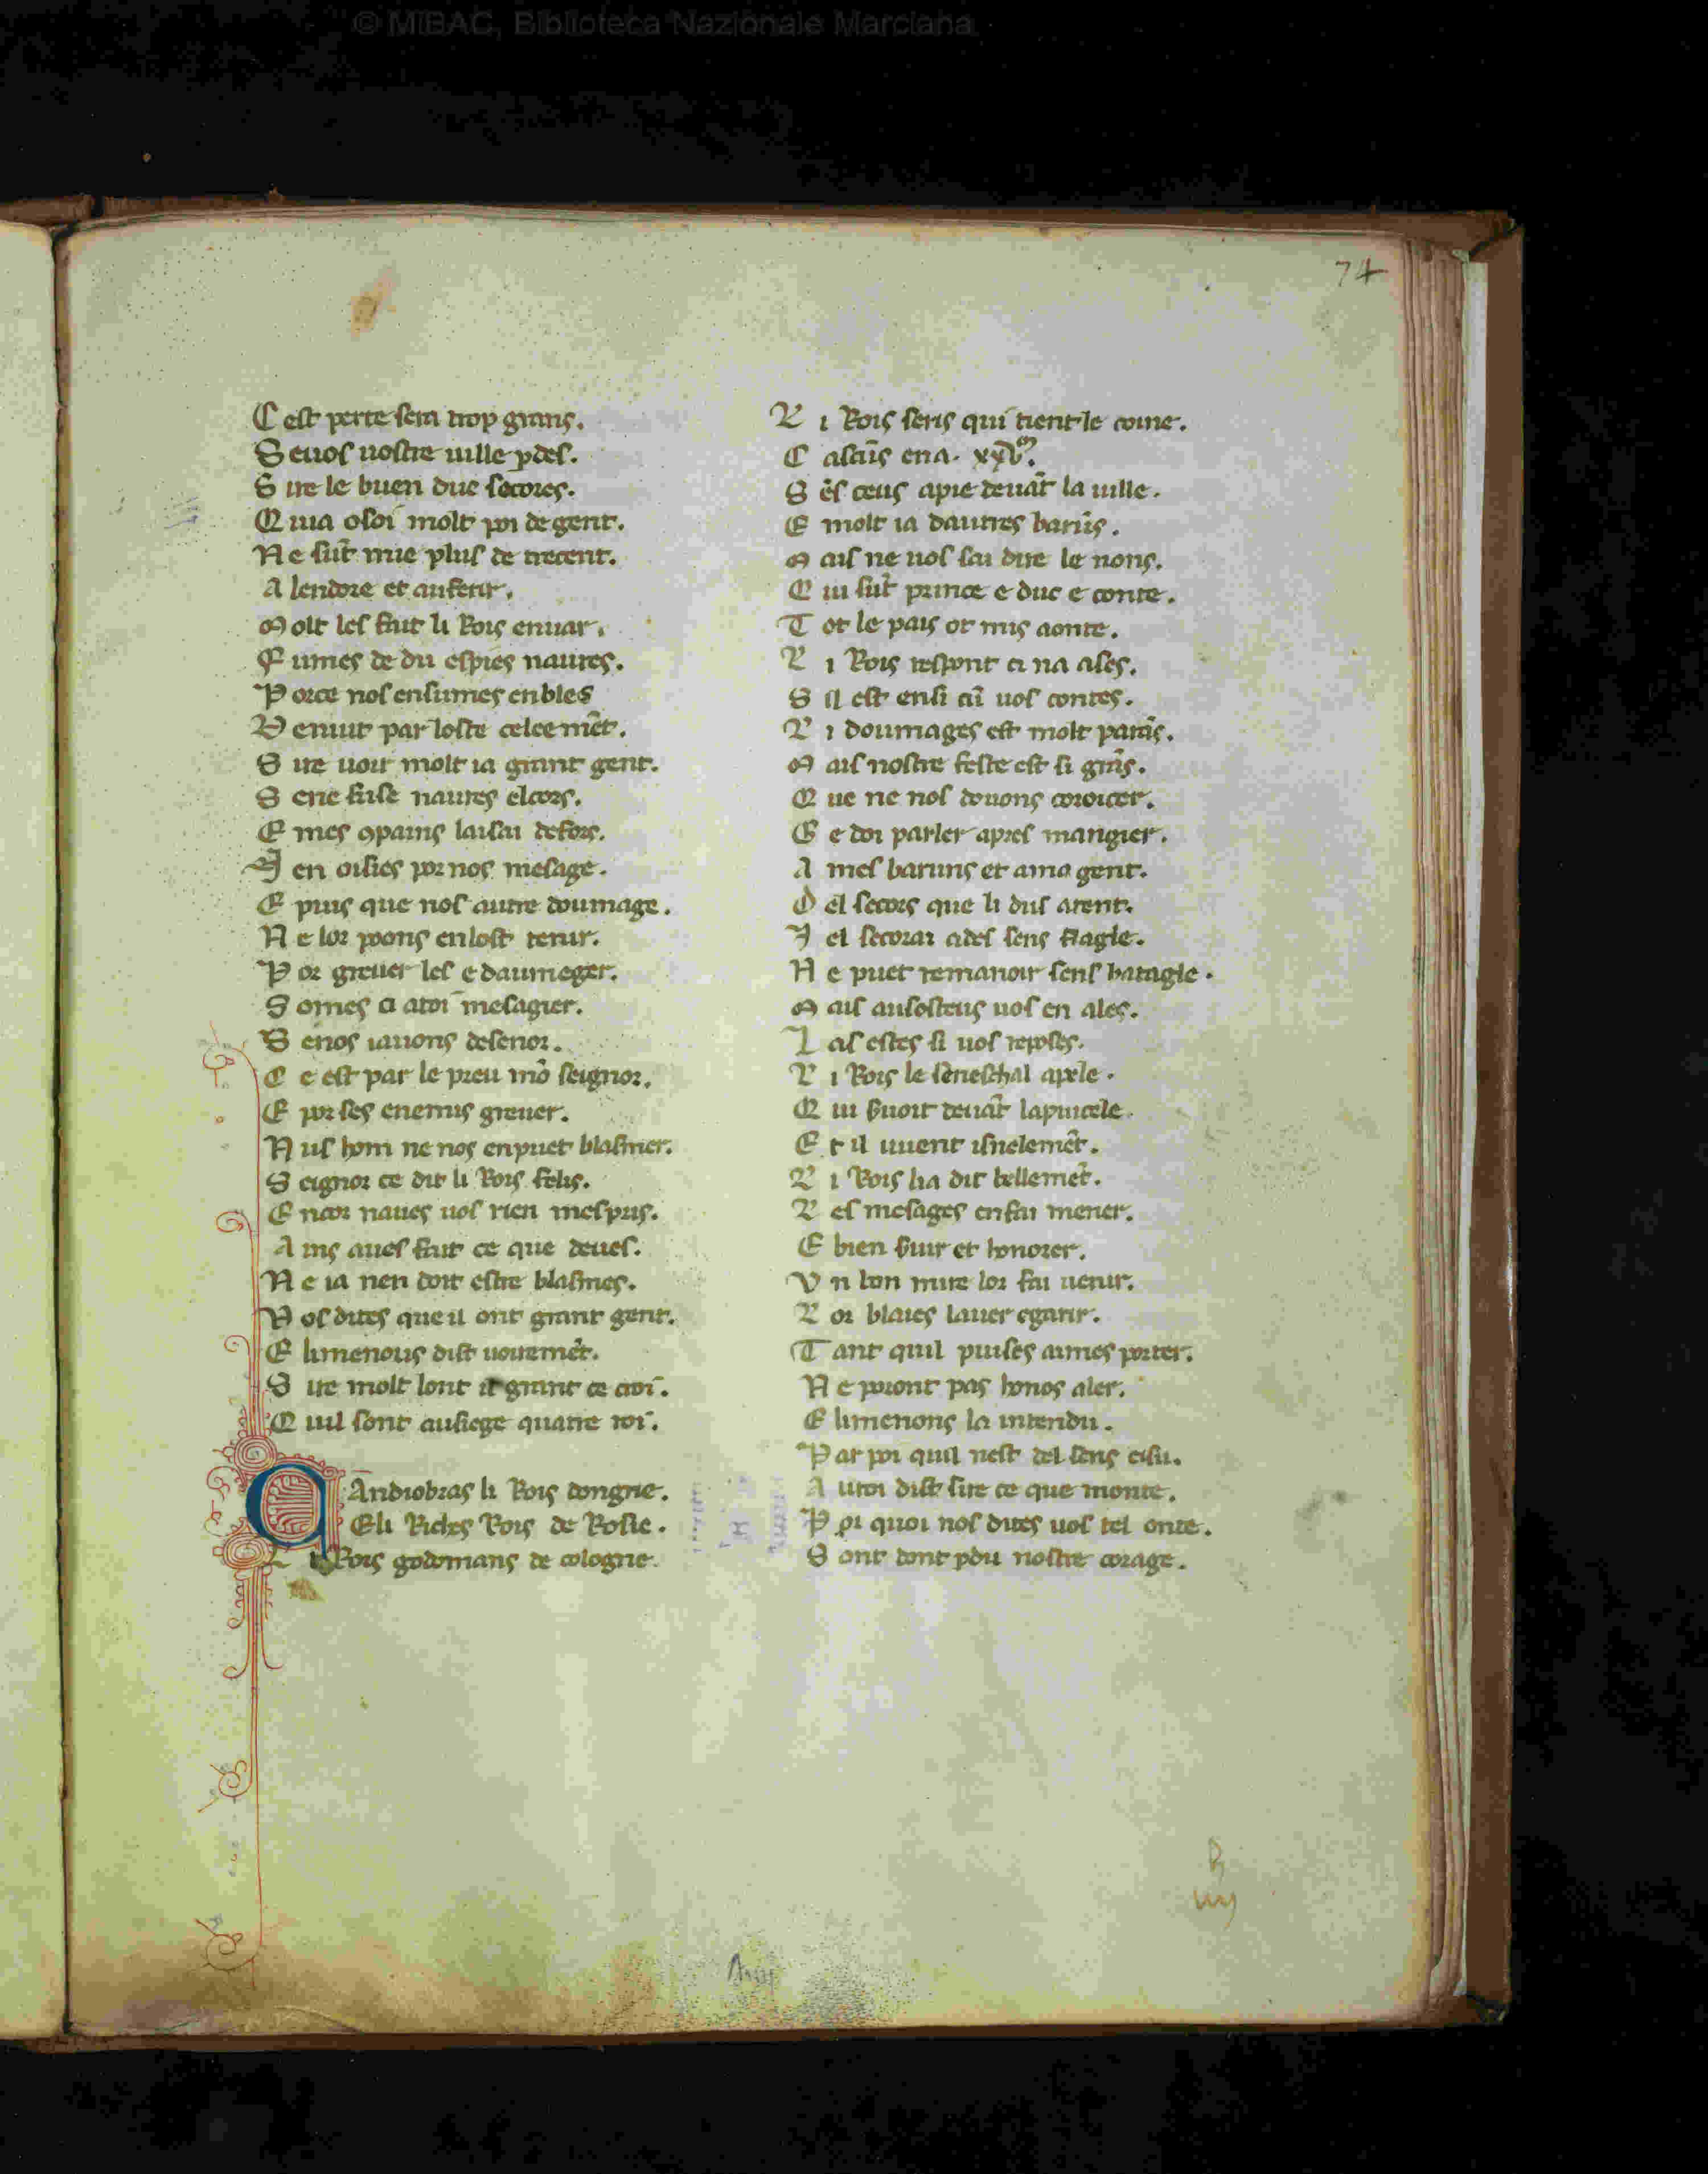 © MiBAC, Biblioteca Nazionale Marciana
74
C est perte sera trop grans.
S e uos uostre uille pdes.
S ire le buen duc secores.
Q ui a o soi molt poi de gent.
N e sūt mie plus de trecent.
A lendore et au ferir.
M olt les fait li Rois enuair.
F umes de dii espies naures.
P or ce nos en sumes enbles
V enuit par loste celeemēt.
S ire uoir molt ia grant gent.
S e ne fuse naures el cors.
E mes 9pains laisai defors.
J a en oisies por nos mesage.
E puis que nos autre doumage.
N e lor poons en lost tenir.
P or greuer les e daumeger.
S omes ci a toi mesagier.
S e nos i auons desenor.
C e est par le preu mō seignor.
E por ses enemis greuer.
N us hom ne nos en puet blasmer.
S eignor ce dit li Rois felis.
E ncor naues uos rien mespris.
A ins aues fait ce que deues.
N e ia nen doit estre blasmes.
V os dites que il ont grant gent.
E limenous dist uoiremēt.
S ire molt sont il grant ce croi.
Q uil sont au siege quatre roi.
C Andiobras li Rois dongrie.
E li Riches Rois de Rosie.
L i Rois godomans de cologne.
L i Rois seris qui tient le coine.
C ascūs en a. xxv.m.
S ēs ceus a pie deuāt la uille.
E molt ia dautres barūs.
M ais ne uos sai dire le nons.
Q ui sūt prince e duc e conte.
T ot le pais ot mis a onte.
L i Rois respont ci na ases.
S il est ensi cū uos contes.
L i doumages est molt parās.
M ais nostre feste est si grās.
Q ue ne nos douons coroicer.
G e doi parler apres mangier.
A mes baruns et a ma gent.
D el secors que li dus atent.
J el secorai ades sens flagle.
N e puet remanoir sens batagle.
M ais au sosteus uos en ales.
L as estes si uos reposes.
L i Rois le seneschal apele.
Q ui suoit deuāt la pucele.
E t il uient isnelemēt.
L i Rois li a dit bellemēt.
L es mesages en fai mener.
E bien suir et honorer.
V n bon mire lor fai uenir.
L or blaies lauer e garir.
T ant quil puises armes porter.
N e poront pas honos aler.
E limenons la intendu.
P ar poi quil nest del sens eisu.
A u roi dist sire ce que monte.
P or quoi nos dites uos tel onte.
S ont dont pdu nostre corage.